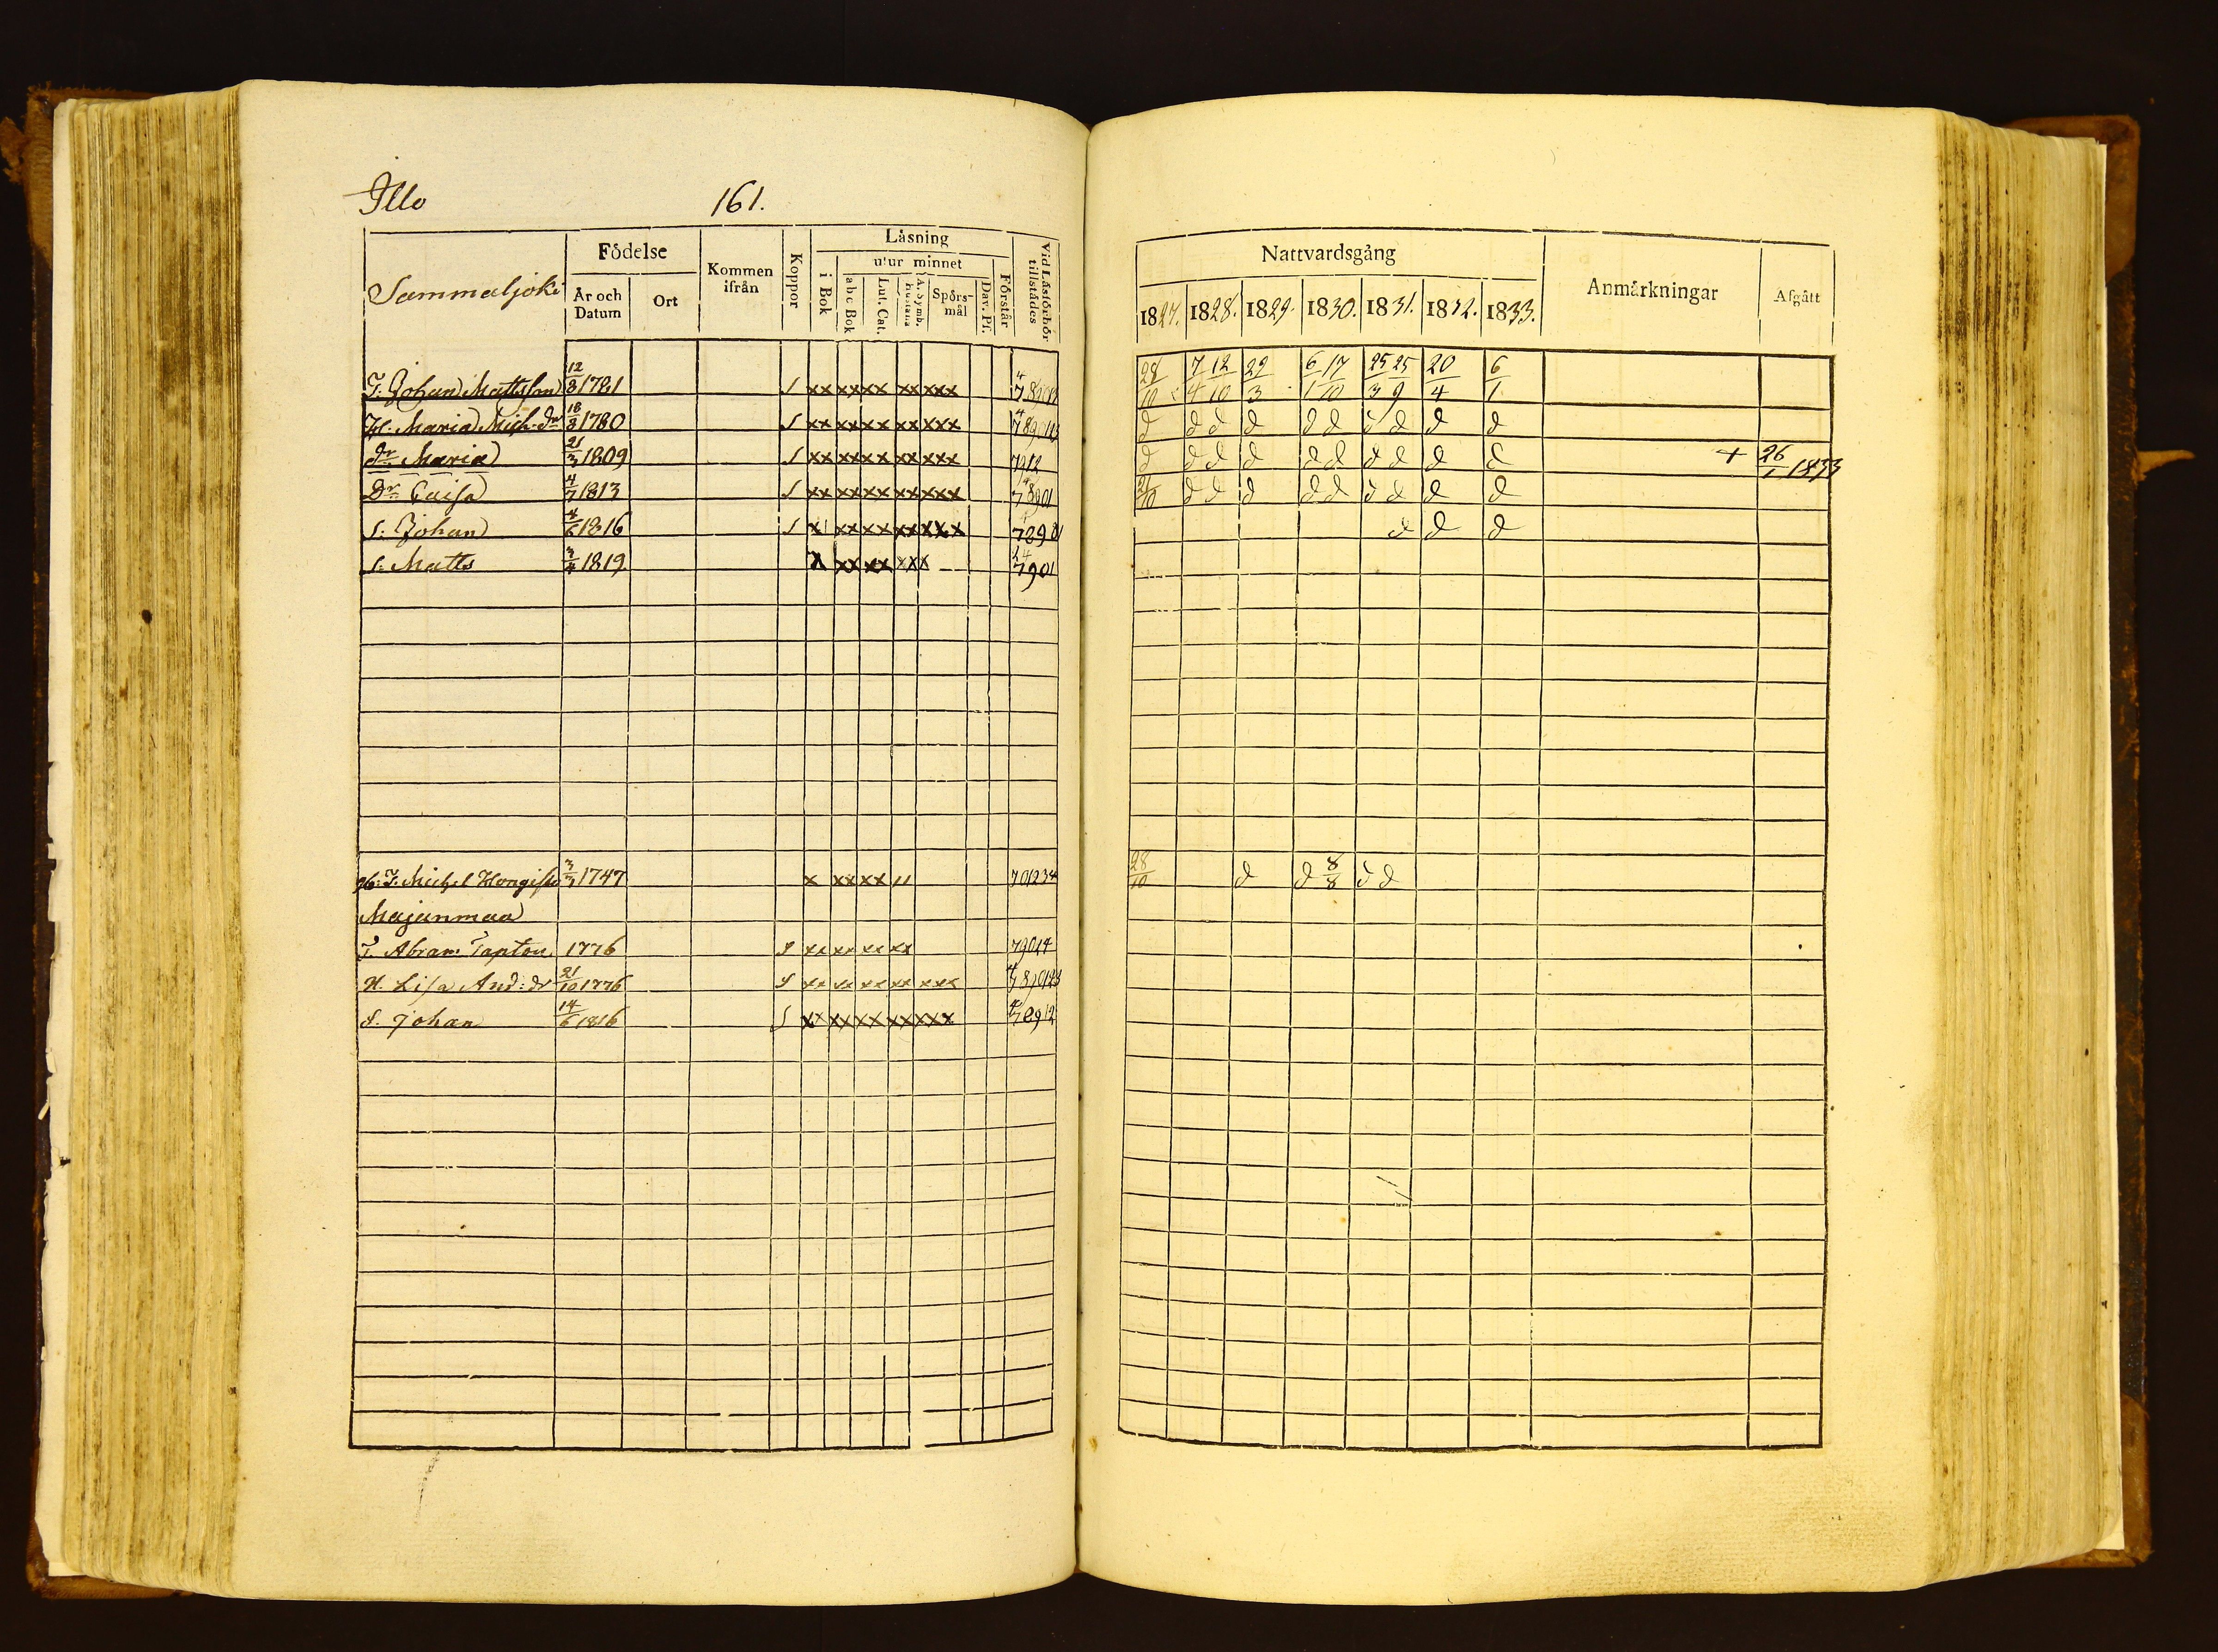 Illo 161.
Sammaljoki Födelse År och Datum Ort Kommen ifrån Koppor Låsning i Bok utur minnet abc Bok Lut. Cat. A. Symb. Spörsmål Dav. Ps. Förstår Vid Låsförhör tillstådes
T. Johan Mattsson 12/8 1781 S xx xx xx xx xxx
H. Maria Mich. dr 18/8 1780 S xx xx xx xx xxx
dr Maria 21/3 1809 S xx xx xx xx xxx 7912
Dr Caisa 4/7 1813 S xx xx xx xx xxx 78901
S. Johan 4/6 1816 S x xx xx xx xxx
S. Matts 3/4 1819 x xx xx xxx 7901
T. Michel Hongisto 3/3 1747 x xx xx 11 701234
Majanmaa
T. Abram 1776 S xx xx xx xx 79014
H. Lisa And: dr 21/10 1776 S xx xx xx xx xxx
S. Johan 14/6 1816 S xx xx xx xx xxx
Nattvardsgång Anmårkningar Afgått
1827. 1828. 1829. 1830. 1831. 1832. 1833.
28/10 7/4 12/10 29/3 6/1 17/10 25/3 25/9 20/4 6/1
d d d d d d d d d d
d d d d d d d d d d + 26/1 1833
21/10 d d d d d d d d d
d d d
28/10 d d 8/8 d d